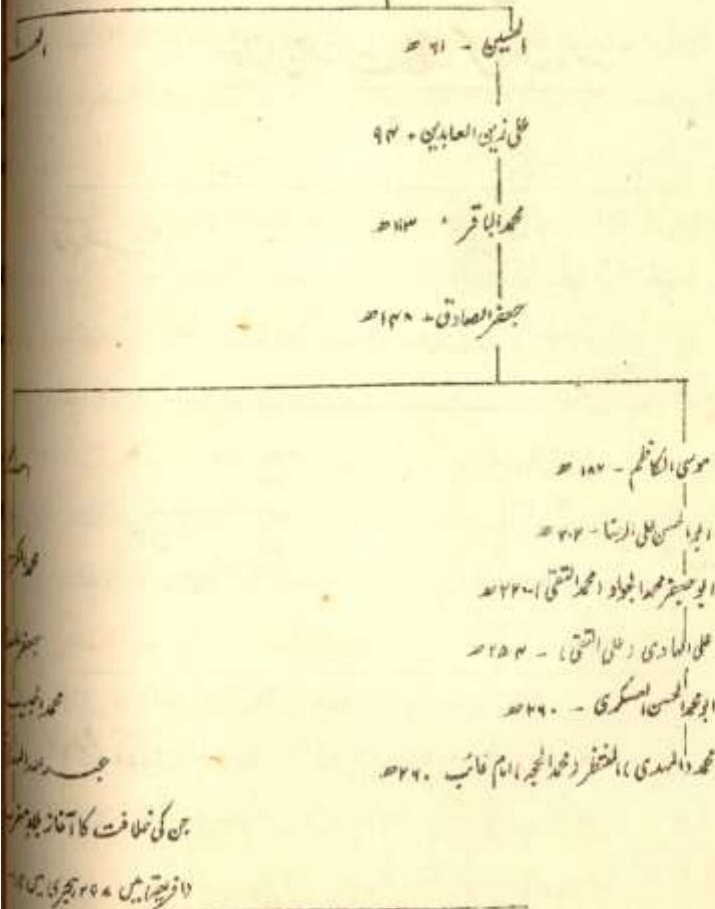 الحسین - ۶۱ ھ
علی زین العابدین - ۹۴
محمد الباقر - ۱۱۳ ھ
جعفر الصادق - ۱۴۸ ھ
موسیٰ الکاظم - ۱۸۷ ھ
ابو الحسن علی الرضا - ۲۰۲ ھ
ابو جعفر محمد الجواد (محمد التقی) - ۲۲۰ ھ
علی الہادی (علی النقی) - ۲۵۴ ھ
ابو محمد الحسن العسکری - ۲۶۰ ھ
محمد الحبیب
محمد (المہدی) المنتظر (محمد الحجہ) امام غائب ۲۶۰ ھ
جن کی خلافت کا آغاز بلاد
(افریقہ) میں ۲۹۸ ہجری میں